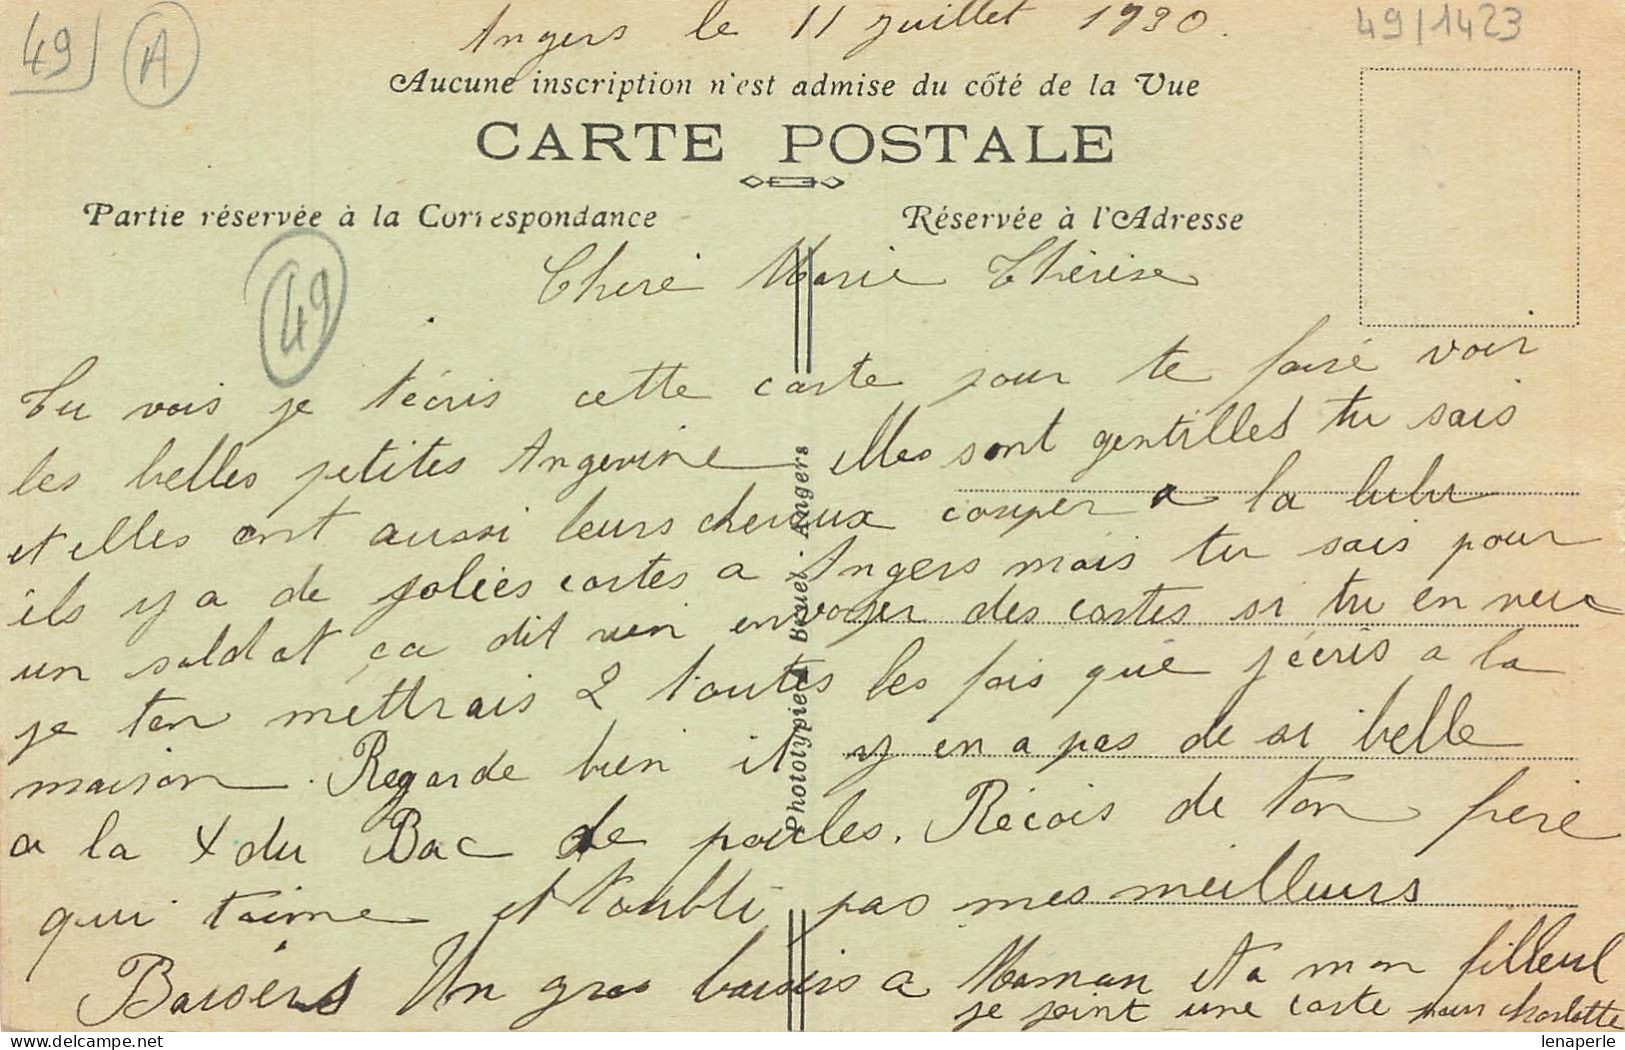 49 A
Angers le 11 juillet 1930.
49/1423
Aucune inscription n'est admise du côté de la Vue
CARTE POSTALE
Partie réservée à la Correspondance
Réservée à l'Adresse
49
Cheré Marie Thérèse
Tu vois je t'écris cette carte pour te faire voir
les belles petites Angevine elles sont gentilles tu sais
et elles ont aussi leurs cheveux couper a la lulu
ils y a de jolies cartes a Angers mais tu sais pour
un soldat ça dit rien envoyer des cartes si tu en veux
je ten mettrais 2 toutes les fois que j'écris a la
maison. Regarde bien il y en a pas de si belle
a la X du Bac de poules. Récois de ton frère
qui t'aime et t'oubli pas mes meilleurs
Baisers Un gros baisers a Maman et a mon filleul
je joint une carte pour charlotte
Phototypie Bruel. Angers
lenaperle